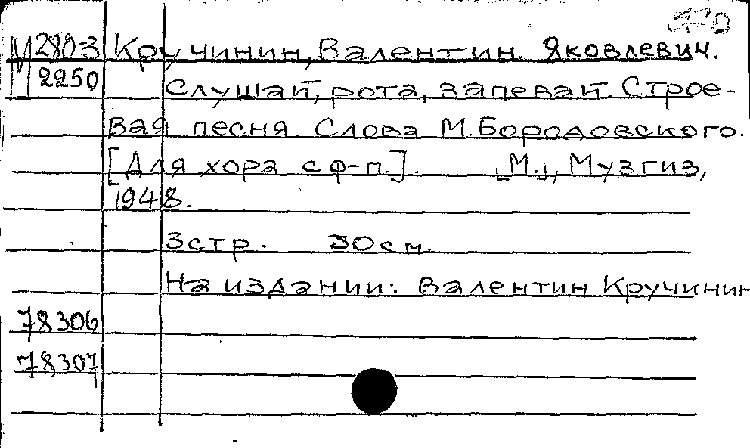 М 280-3 Кручинин, Валентин Яковлевич.
2250 Слушай, рота, запевай. Строе-
вая песня. Слова М. Бородовского.
[Для хора с ф-п.]. [М.], Музгиз,
1948.
3 стр. 30 см.
На издании: Валентин Кручинин
78306
78307